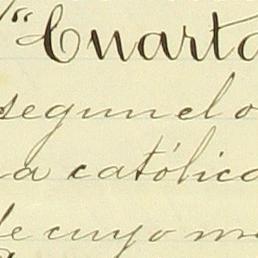 "Cuarta
segun el o
a católica
de cuyo m